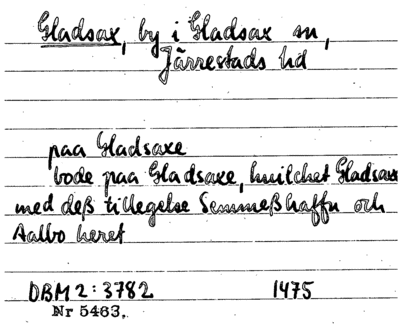 Gladsax, by i Gladsax sn,
Järrestads hd
paa Gladsaxe
bode paa Gladsaxe, huilchet Gladsax
med deß tillegelse Semmeßhaffn och
Aalbo heret
DBM 2:3782 1475
Nr 5463.